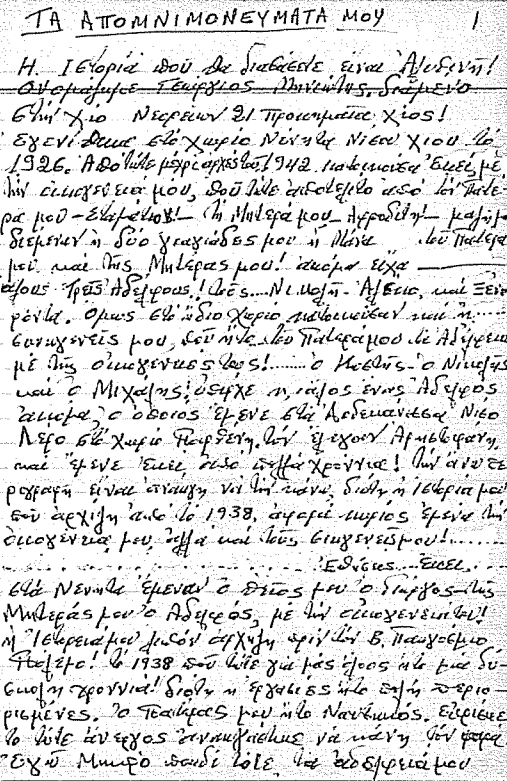 ΤΑ ΑΠΟΜΝΙΜΟΝΕΥΜΑΤΑ ΜΟΥ 1
Η. Ιστορία που θα διαβάσετε είναι Αληθινή!
Ονομάζομε Γεώργιος διάμενο
στην Χίο Νεωρείων 21 Προκημαία, χίος!
Εγενίθηκα στο χωρίο Νένητα Νίσου Χίου το
1926. Από τότε μέχρι αρχές του 1942 κατοικούσα Εκεί, με
την οικογένεια μου, που τότε από τον Πατέ-
ρα μου - Σταμάτιου! - Τη Μητέρα μου Αφροδίτη! - μαζή με
δύο γιαγιάδες μου η Μάνα του Πατέρα
μου και της Μητέρας μου! ακόμα είχα
άλλους Τρεις Αδελφους! τους.... Νικολή - Αλέκο, και Ξενο
φόντα. Ομως στο ήδιο χωρίο κατοικούσαν και η....
συγκγενείς μου, του Πατέρα μου τα Αδέρφια
με της οικογένειες τους!........ ο Κωστής - ο Νικολής
και ο Μιχάλης! ένας Αδελφός
ακόμα, ο όποιος έμενε στα Δοδεκάνισσα Νίσο
Λέρο στο χωρίο Παρθένη. τον έλεγαν Αρηστοφάνη
και έμενε Εκεί από πολλά χρόννια! Την
ρογραφή είναι ανάγκη να την κάνω, διότη η Ιστορία μου
που αρχίζη από το 1938. αφορά κυρίος έμενα την
οικογένειά μου, αλλά και τους συγκγενείς μου!........
Επίσεις Εκεί
στα Νένητα έμεναν ο Θείος μου ο Γιώργος - της
Μητεράς μου ο Αδελφός, με την οικογένεια του!
ή Ιστορεία μου λιπόν άρχηζη πριν τον Β. Παγκόσμιο
Πόλεμο! το 1938 που τότε για μας όλους ήτο μιά δύ-
σκολη χρονιά! διότη η εργασίες ήτο πολή περιο-
ρισμένες. Ο Πατέρας μου ήτο Ναυτικός. ευρίσκε
το τότε άνεργος να κάνη τον ψαρά
Εγώ Μικρό παιδί τότε, τα αδέλφειά μου